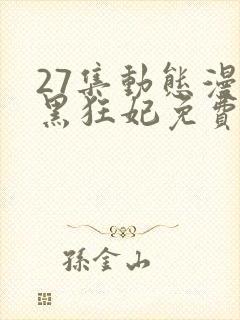 27集動態漫
黑狂妃免費
孫金山